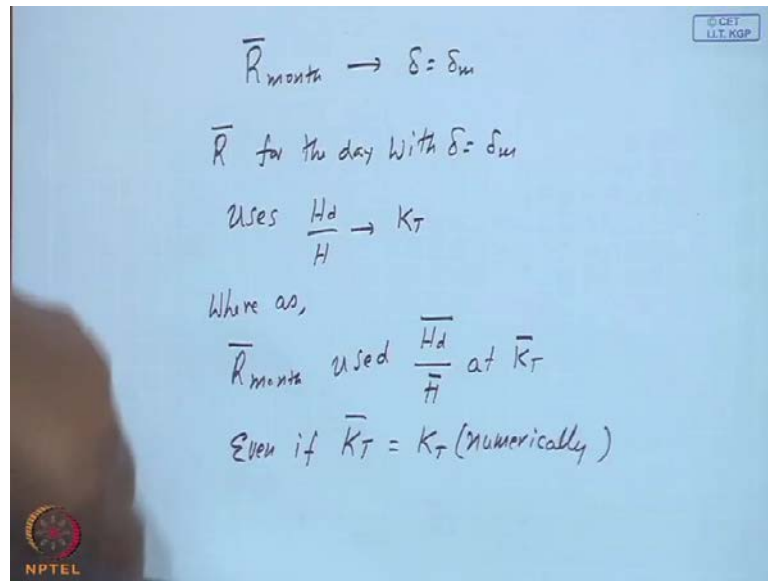 © CET
I.I.T. KGP
R̅ month → δ = δm
R̅ for the day with δ = δm
Uses Hd/H → KT
Where as,
R̅ month used H̅d̅/H̅ at K̅T
Even if K̅T = KT (numerically)
NPTEL